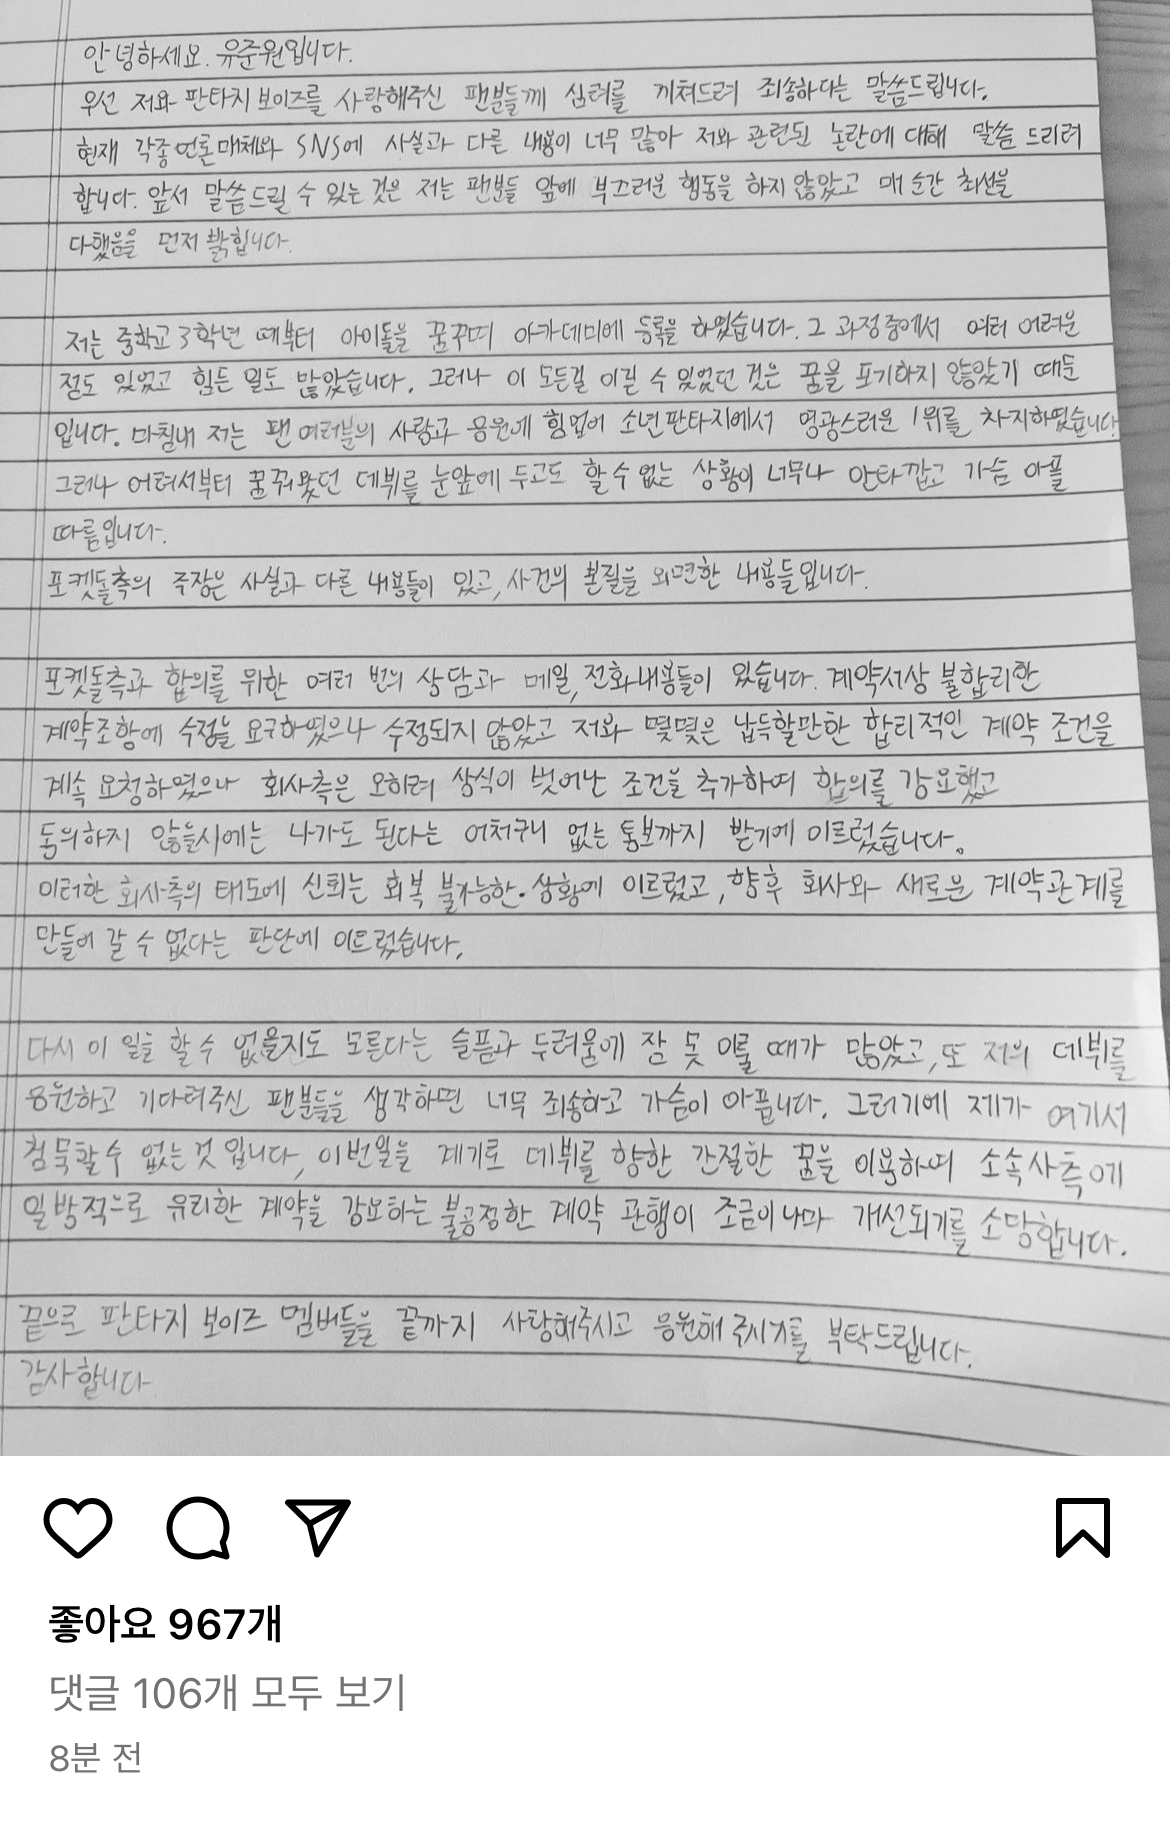 안녕하세요. 유준원입니다.
우선 저와 판타지 보이즈를 사랑해주신 팬분들께 심려를 끼쳐드려 죄송하다는 말씀드립니다.
현재 각종 언론매체와 SNS에 사실과 다른 내용이 너무 많아 저와 관련된 논란에 대해 말씀 드리려
합니다. 앞서 말씀드릴 수 있는 것은 저는 팬분들 앞에 부끄러운 행동을 하지 않았고 매 순간 최선을
다했음을 먼저 밝힙니다.
저는 중학교 3학년 때부터 아이돌을 꿈꾸며 아카데미에 등록을 하였습니다. 그 과정중에서 여러 어려운
점도 있었고 힘든 일도 많았습니다. 그러나 이 모든걸 이길 수 있었던 것은 꿈을 포기하지 않았기 때문
입니다. 마침내 저는 팬 여러분의 사랑과 응원에 힘업어 소년판타지에서 영광스러운 1위를 차지하였습니다
그러나 어려서부터 꿈꿔왔던 데뷔를 눈앞에 두고도 할 수 없는 상황이 너무나 안타깝고 가슴 아플
따름입니다.
포켓돌측의 주장은 사실과 다른 내용들이 있고, 사건의 본질을 외면한 내용들입니다.
포켓돌측과 합의를 위한 여러 번의 상담과 메일, 전화내용들이 있습니다. 계약서상 불합리한
계약조항에 수정을 요구하였으나 수정되지 않았고 저와 몇몇은 납득할만한 합리적인 계약 조건을
계속 요청하였으나 회사측은 오히려 상식이 벗어난 조건을 추가하며 합의를 강요했고
동의하지 않을시에는 나가도 된다는 어처구니 없는 통보까지 받기에 이르렀습니다.
이러한 회사측의 태도에 신뢰는 회복 불가능한 상황에 이르렀고, 향후 회사와 새로운 계약관계를
만들어 갈 수 없다는 판단에 이르렀습니다.
다시 이 일을 할 수 없을지도 모른다는 슬픔과 두려움에 잠 못 이룰 때가 많았고, 또 저의 데뷔를
응원하고 기다려주신 팬분들을 생각하면 너무 죄송하고 가슴이 아픕니다. 그러기에 제가 여기서
침묵할 수 없는 것 입니다, 이번일을 계기로 데뷔를 향한 간절한 꿈을 이용하여 소속사측에
일방적으로 유리한 계약을 강요하는 불공정한 계약 관행이 조금이나마 개선되기를 소망합니다.
끝으로 판타지 보이즈 멤버들을 끝까지 사랑해주시고 응원해 주시기를 부탁드립니다.
감사합니다
좋아요 967개
댓글 106개 모두 보기
8분 전